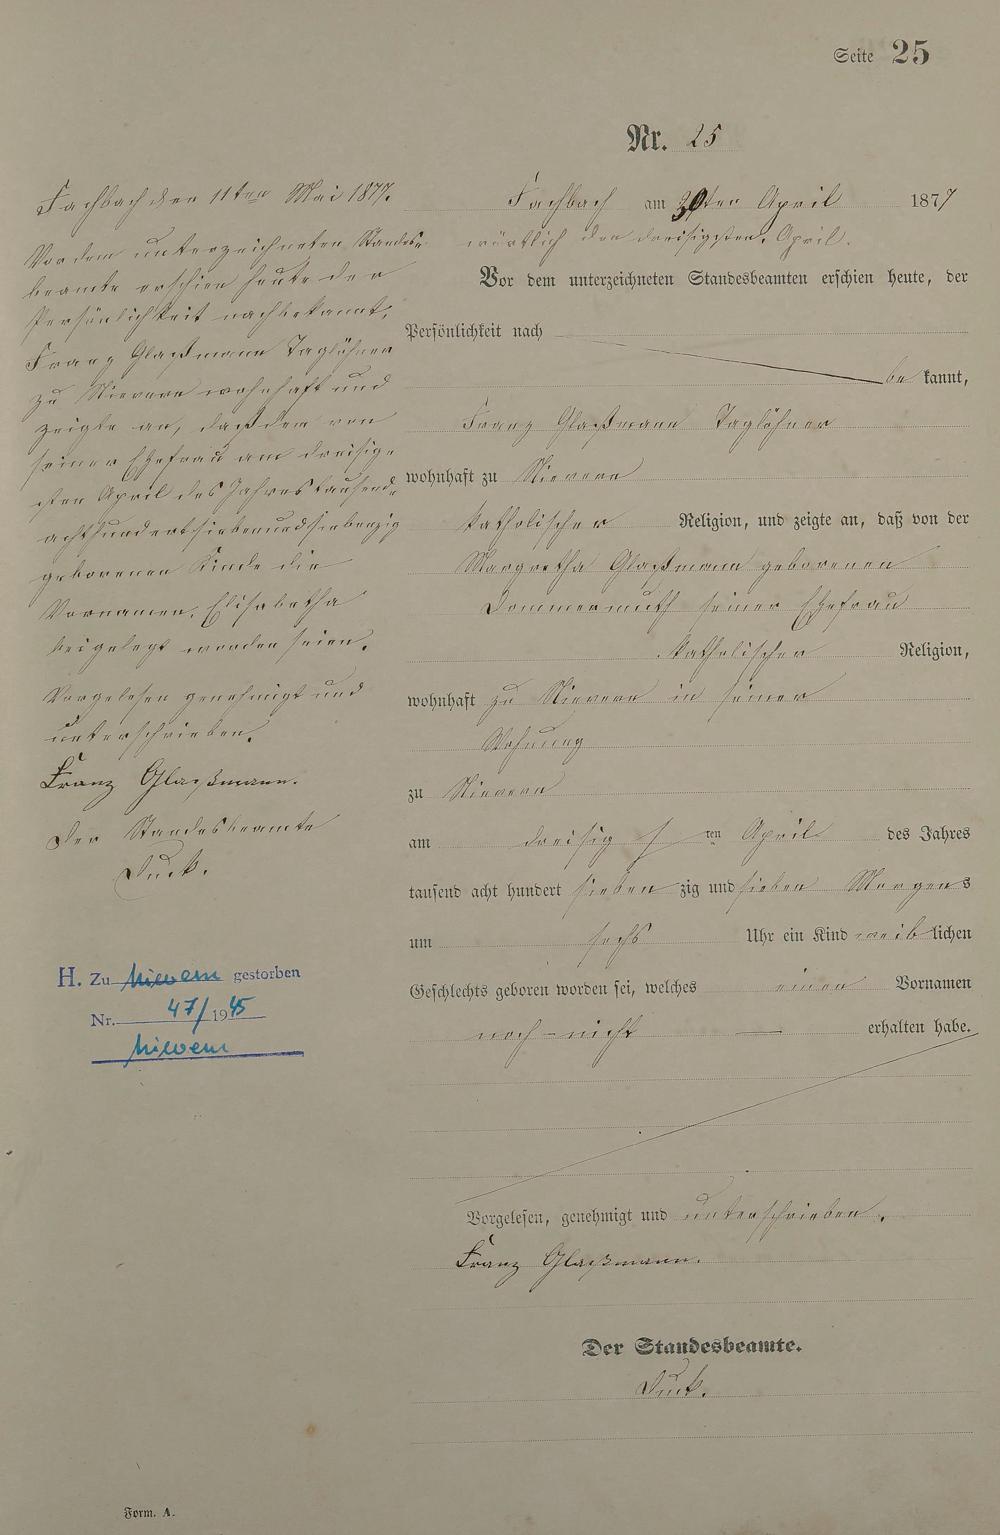 Seite 25
Nr. 25
Fachbach am 30ten April 1877
wörtlich den dreisigsten April.
Vor dem unterzeichneten Standesbeamten erschien heute, der
Persönlichkeit nach
be kannt,
Franz Glaßmann Taglöhner
wohnhaft zu Nievern
katholischer Religion, und zeigte an, daß von der
Margretha Glaßmann geborenen
Dommermuth seiner Ehefrau
katholischer Religion,
wohnhaft zu Nievern in seiner
Wohnung
zu Nievern
am dreisigsten April des Jahres
tausend acht hundert sieben zig und sieben Morgens
um sechs Uhr ein Kind weiblichen
Geschlechts geboren worden sei, welches einen Vornamen
noch - nicht — erhalten habe.
Vorgelesen, genehmigt und unterschrieben.
Franz Glaßmann.
Der Standesbeamte.
Duck.
Fachbach den 11ten Mai 1877.
Vor dem unterzeichneten Standes-
beamte erschien heute der
Persönlichkeit nach bekannt,
Franz Glaßmann Taglöhner
zu Nievern wohnhaft und
zeigte an, daß dem von
seiner Ehefrau am dreisig-
sten April des Jahres tausend-
achthundertsiebenundsiebenzig
geborenen Kinde die
Vornamen, Elisabetha
beigelegt worden seien.
Vorgelesen genehmigt und
unterschrieben.
Franz Glaßmann.
Der Standesbeamte
Duck.
H. Zu Nievern gestorben
Nr. 47/1945
Nievern
Form. A.